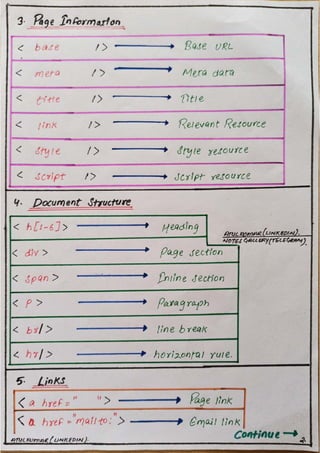 3. Page Information
< base /> → Base URL
< meta /> → Meta data
< title /> → Title
< link /> → Relevant Resource
< style /> → Style resource
< script /> → Script resource
4. Document Structure
< h[1-6]> → Heading
ATULKUMAR (LINKEDIN).
NOTES GALLERY(TELEGRAM)
< div > → Page section
< span > → Inline section
< P > → Paragraph
< br/ > → line break
< hr/ > → horizontal rule.
5. Links
< a href = " "> → Page link
< a href = "mailto:"> → Email link
Continue →
ATULKUMAR (LINKEDIN).
2.